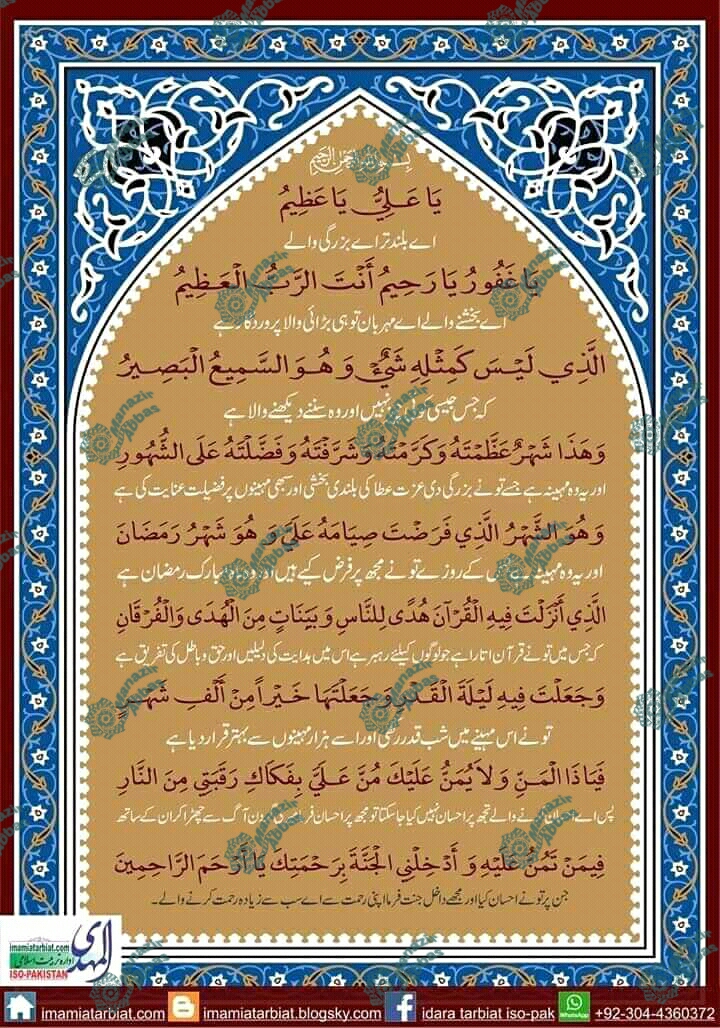 بسم الله الرحمن الرحيم
يَا عَلِيُّ يَا عَظِيمُ
اے بلند تر اے بزرگی والے
يَا غَفُورُ يَا رَحِيمُ أَنْتَ الرَّبُّ الْعَظِيمُ
اے بخشنے والے اے مہربان تو ہی بڑائی والا پروردگار ہے
الَّذِي لَيْسَ كَمِثْلِهِ شَيْءٌ وَ هُوَ السَّمِيعُ الْبَصِيرُ
کہ جس جیسی کوئی نہیں اور وہ سننے دیکھنے والا ہے
وَ هَذَا شَهْرٌ عَظَّمْتَهُ وَ كَرَّمْتَهُ وَ شَرَّفْتَهُ وَ فَضَّلْتَهُ عَلَى الشُّهُورِ
اور یہ وہ مہینہ ہے جسے تو نے بزرگی دی عزت عطا کی بلندی بخشی اور سبھی مہینوں پر فضیلت عنایت کی ہے
وَ هُوَ الشَّهْرُ الَّذِي فَرَضْتَ صِيَامَهُ عَلَيَّ وَ هُوَ شَهْرُ رَمَضَانَ
اور یہ وہ مہینہ ہے جس کے روزے تو نے مجھ پر فرض کیے ہیں اور وہ ماہ مبارک رمضان ہے
الَّذِي أَنْزَلْتَ فِيهِ الْقُرْآنَ هُدًى لِلنَّاسِ وَ بَيِّنَاتٍ مِنَ الْهُدَى وَالْفُرْقَانِ
کہ جس میں تو نے قرآن اتارا ہے جو لوگوں کیلئے رہبر ہے اس میں ہدایت کی دلیلیں اور حق و باطل کی تفریق ہے
وَ جَعَلْتَ فِيهِ لَيْلَةَ الْقَدْرِ وَ جَعَلْتَهَا خَيْراً مِنْ أَلْفِ شَهْرٍ
تو نے اس مہینے میں شب قدر رکھی اور اسے ہزار مہینوں سے بہتر قرار دیا ہے
فَيَاذَا الْمَنِّ وَ لاَ يُمَنُّ عَلَيْكَ مُنَّ عَلَيَّ بِفَكَاكِ رَقَبَتِي مِنَ النَّارِ
پس اے احسان کرنے والے تجھ پر احسان نہیں کیا جا سکتا تو مجھ پر احسان فرما میری گردن آگ سے چھڑا کر ان کے ساتھ
فِيمَنْ تَمُنُّ عَلَيْهِ وَ أَدْخِلْنِي الْجَنَّةَ بِرَحْمَتِكَ يَا أَرْحَمَ الرَّاحِمِينَ
جن پر تو نے احسان کیا اور مجھے داخل جنت فرما اپنی رحمت سے اے سب سے زیادہ رحمت کرنے والے۔
المہدی
imamiatarbiat.com
ادارہ تربیت اسلامی
ISO-PAKISTAN
imamiatarbiat.com imamiatarbiat.blogsky.com idara tarbiat iso-pak WhatsApp +92-304-4360372
Manazir Abbas